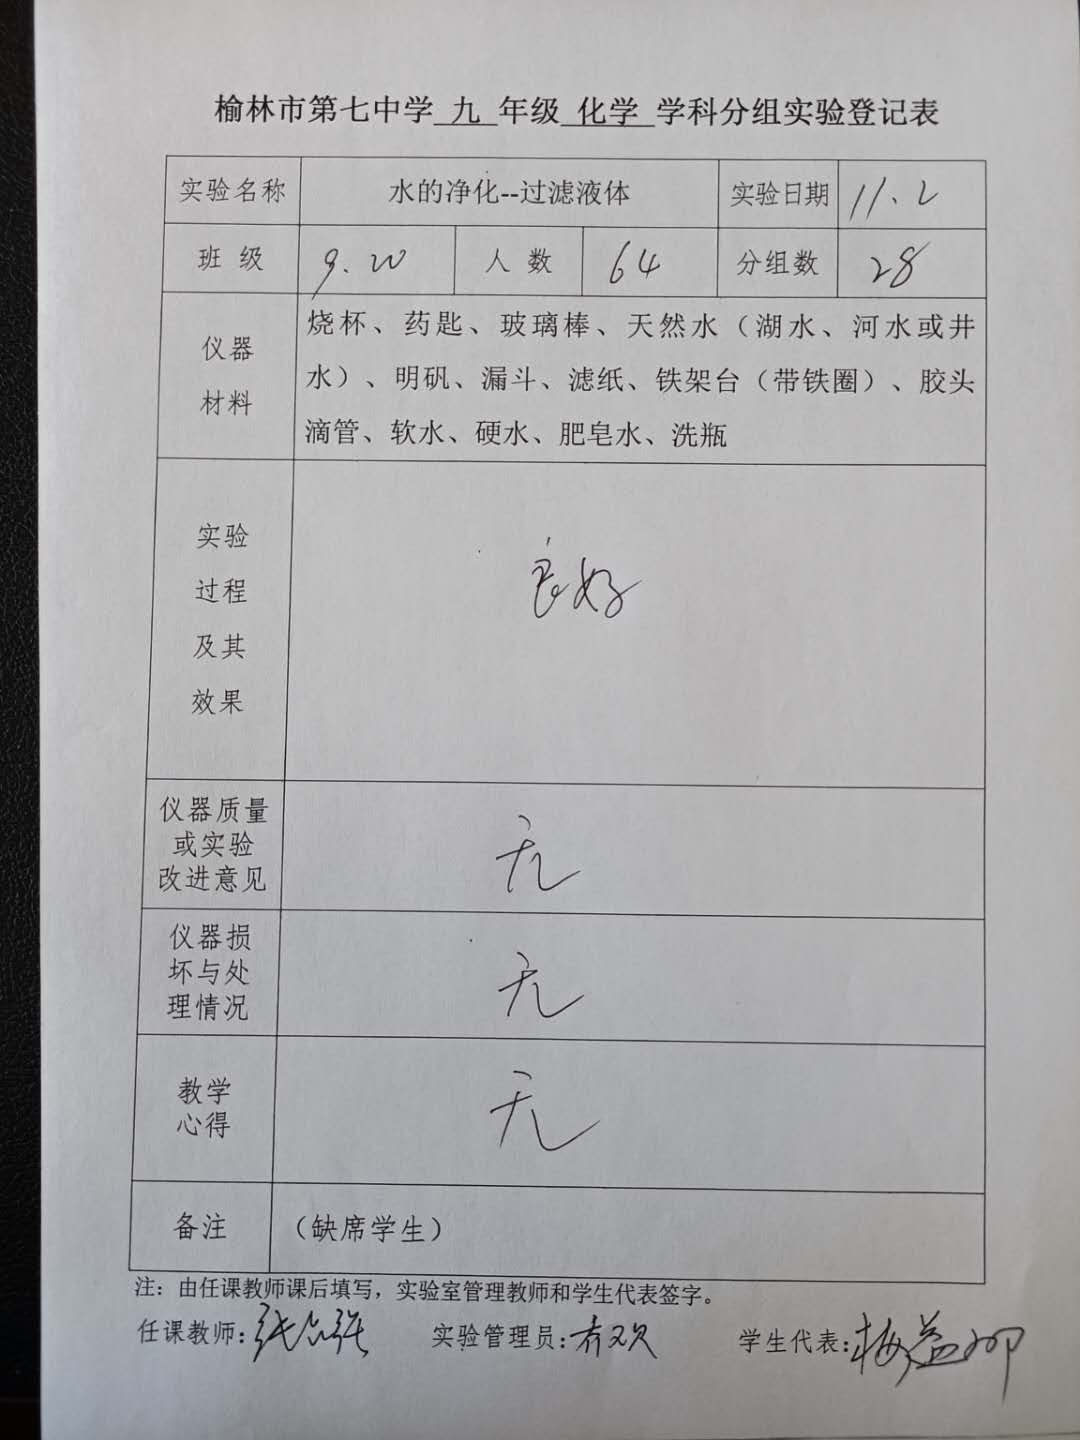 榆林市第七中学 九 年级 化学 学科分组实验登记表
实验名称 水的净化--过滤液体 实验日期 11.2
班 级 9.20 人 数 64 分组数 28
仪器
材料
烧杯、药匙、玻璃棒、天然水（湖水、河水或井
水）、明矾、漏斗、滤纸、铁架台（带铁圈）、胶头
滴管、软水、硬水、肥皂水、洗瓶
实验
过程
及其
效果
良好
仪器质量
或实验
改进意见
无
仪器损
坏与处
理情况
无
教学
心得
无
备注 （缺席学生）
注：由任课教师课后填写，实验室管理教师和学生代表签字。
任课教师： 实验管理员： 学生代表：